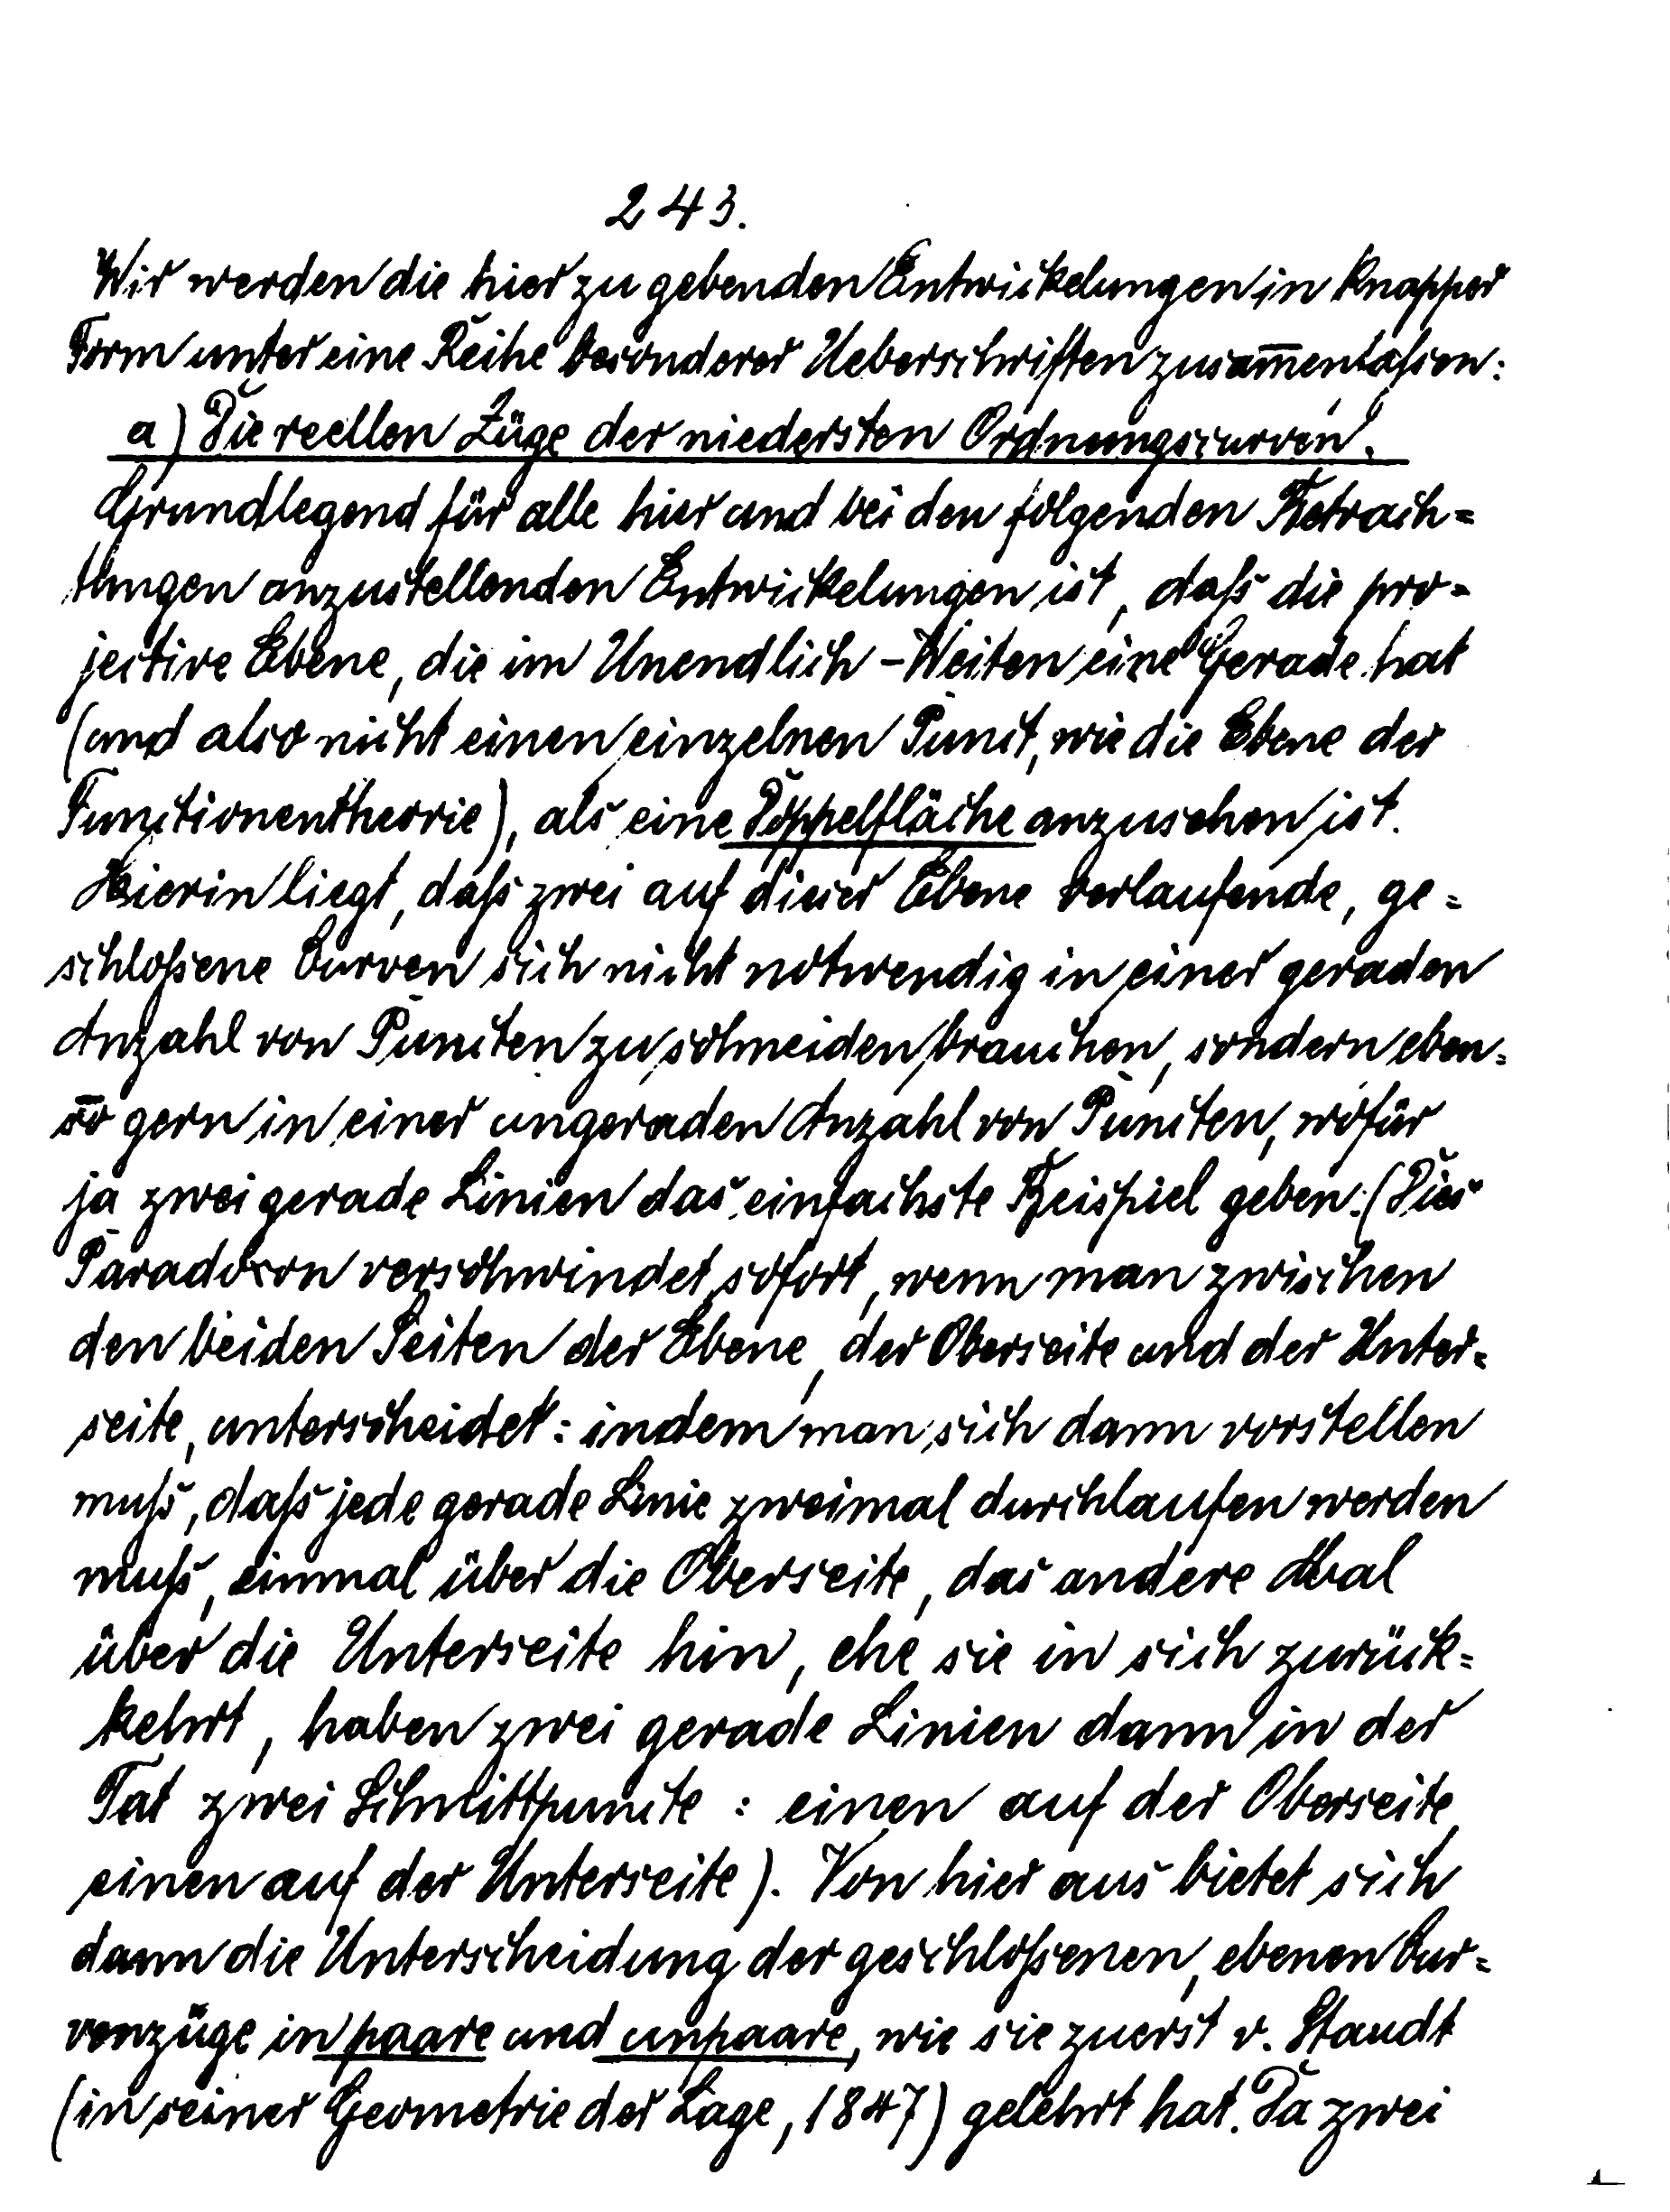 243.
Wir werden die hier zu gebenden Entwickelungen in knapper
Form unter eine Reihe besonderer Ueberschriften zusam̅enfaßen:
a) Die reellen Züge der niedersten Ordnungscurven.
Grundlegend für alle hier und bei den folgenden Betrach=
tungen anzustellenden Entwickelungen ist, daß die pro=
jective Ebene, die im Unendlich-Weiten eine Gerade hat
(und also nicht einen einzelnen Punct, wie die Ebene der
Functionentheorie), als eine Doppelfläche anzusehen ist.
Hierin liegt, daß zwei auf dieser Ebene verlaufende, ge=
schloßene Curven sich nicht notwendig in einer geraden
Anzahl von Puncten zu schneiden brauchen, sondern eben=
so gern in einer ungeraden Anzahl von Puncten, wofür
ja zwei gerade Linien das einfachste Beispiel geben. (Dies
Paradoxon verschwindet sofort, wenn man zwischen
den beiden Seiten der Ebene, der Oberseite und der Unter=
seite, unterscheidet: indem man sich dann vorstellen
muß, daß jede gerade Linie zweimal durchlaufen werden
muß, einmal über die Oberseite, das andere Mal
über die Unterseite hin, ehe sie in sich zurück=
kehrt, haben zwei gerade Linien dann in der
Tat zwei Schnittpuncte: einen auf der Oberseite,
einen auf der Unterseite). Von hier aus bietet sich
dann die Unterscheidung der geschloßenen, ebenen Cur=
venzüge in paare und unpaare, wie sie zuerst v. Staudt
(in seiner Geometrie der Lage, 1847) gelehrt hat. Da zwei